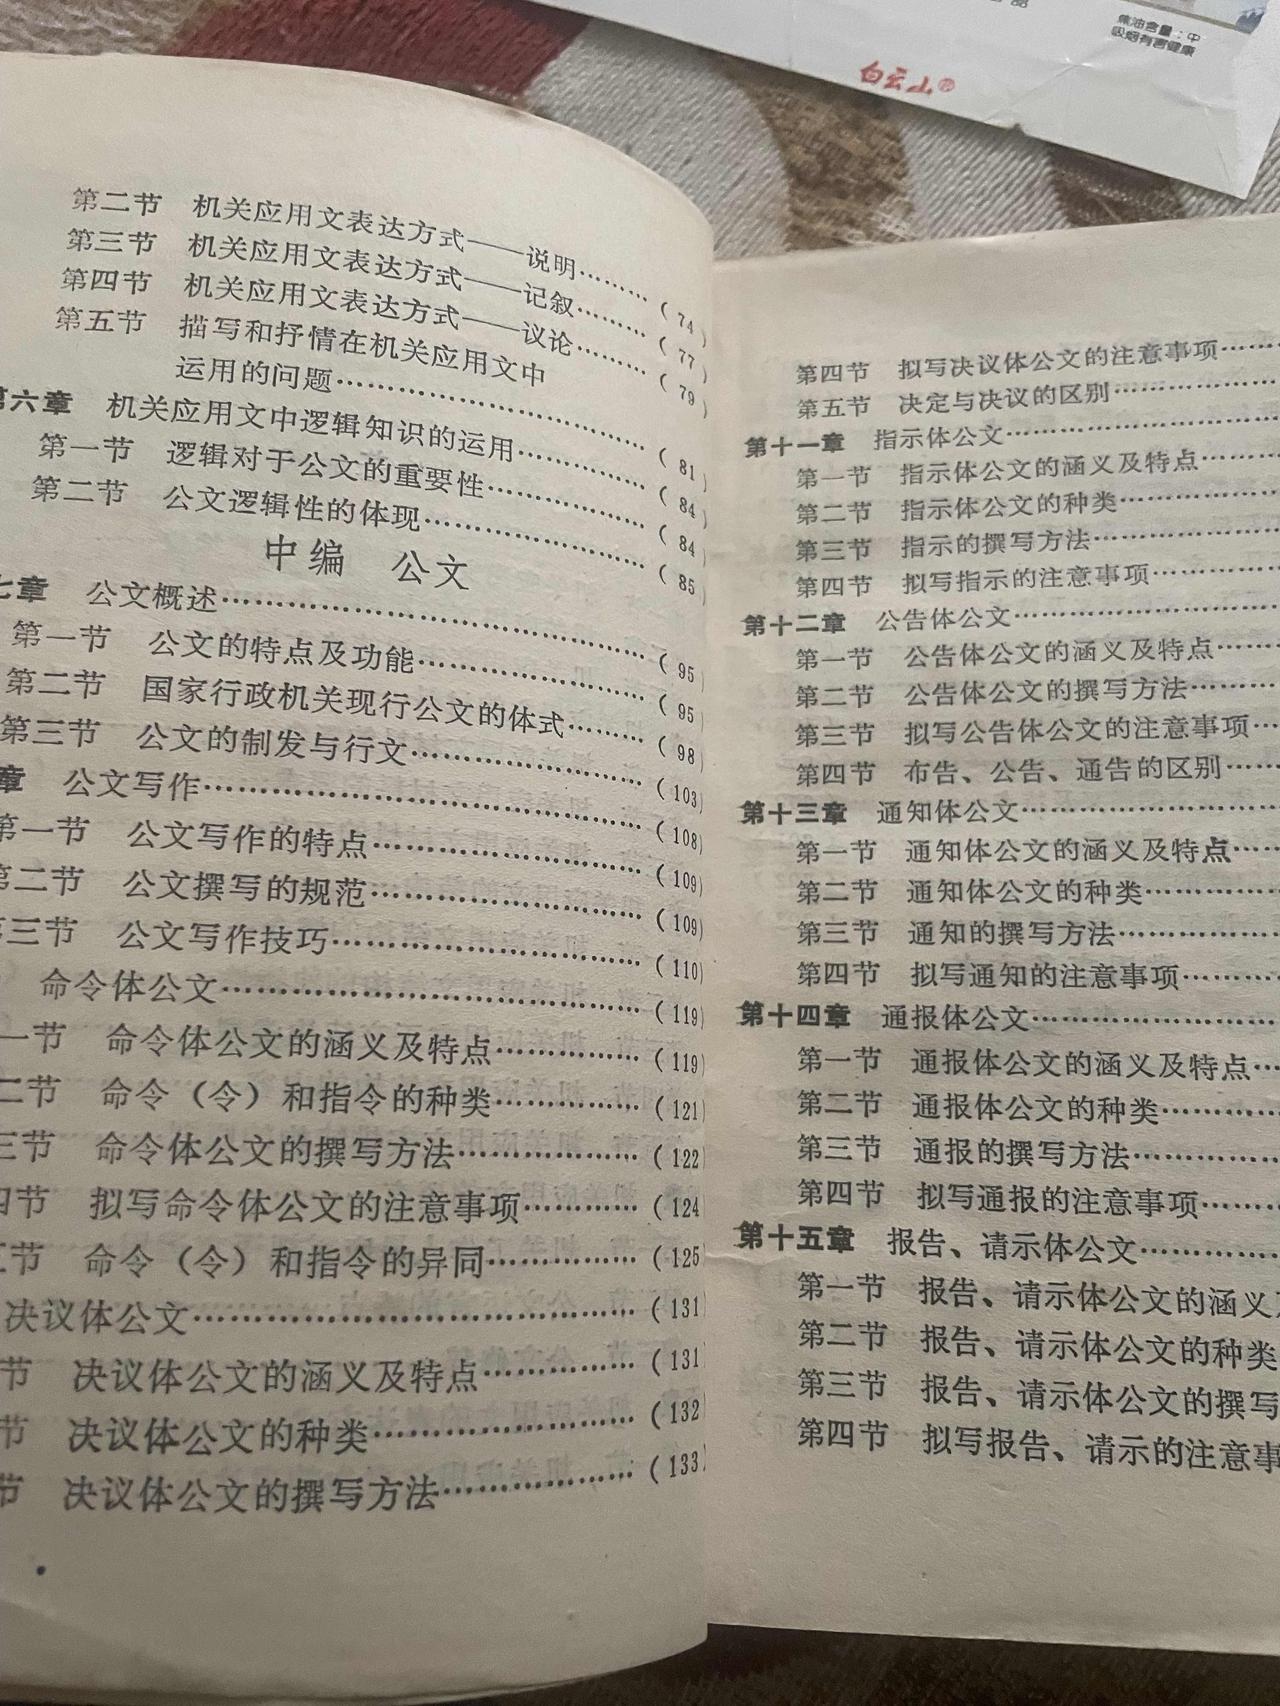 焦油含量：中
吸烟有害健康
白云山®
第二节 机关应用文表达方式——说明……（74）
第三节 机关应用文表达方式——记叙……（77）
第四节 机关应用文表达方式——议论……（79）
第五节 描写和抒情在机关应用文中
运用的问题……（81）
第六章 机关应用文中逻辑知识的运用……（84）
第一节 逻辑对于公文的重要性……（84）
第二节 公文逻辑性的体现……（85）
中编 公文
七章 公文概述……（95）
第一节 公文的特点及功能……（95）
第二节 国家行政机关现行公文的体式……（98）
第三节 公文的制发与行文……（103）
章 公文写作……（108）
第一节 公文写作的特点……（109）
第二节 公文撰写的规范……（109）
第三节 公文写作技巧……（110）
命令体公文……（119）
一节 命令体公文的涵义及特点……（119）
二节 命令（令）和指令的种类……（121）
三节 命令体公文的撰写方法……（122
四节 拟写命令体公文的注意事项……（124
节 命令（令）和指令的异同……（125
决议体公文……（131）
节 决议体公文的涵义及特点……（131
节 决议体公文的种类……（132
节 决议体公文的撰写方法……（133）
第四节 拟写决议体公文的注意事项……
第五节 决定与决议的区别……
第十一章 指示体公文……
第一节 指示体公文的涵义及特点……
第二节 指示体公文的种类……
第三节 指示的撰写方法……
第四节 拟写指示的注意事项……
第十二章 公告体公文……
第一节 公告体公文的涵义及特点……
第二节 公告体公文的撰写方法……
第三节 拟写公告体公文的注意事项……
第四节 布告、公告、通告的区别……
第十三章 通知体公文……
第一节 通知体公文的涵义及特点……
第二节 通知体公文的种类……
第三节 通知的撰写方法……
第四节 拟写通知的注意事项……
第十四章 通报体公文……
第一节 通报体公文的涵义及特点……
第二节 通报体公文的种类……
第三节 通报的撰写方法……
第四节 拟写通报的注意事项……
第十五章 报告、请示体公文……
第一节 报告、请示体公文的涵义及
第二节 报告、请示体公文的种类
第三节 报告、请示体公文的撰写
第四节 拟写报告、请示的注意事